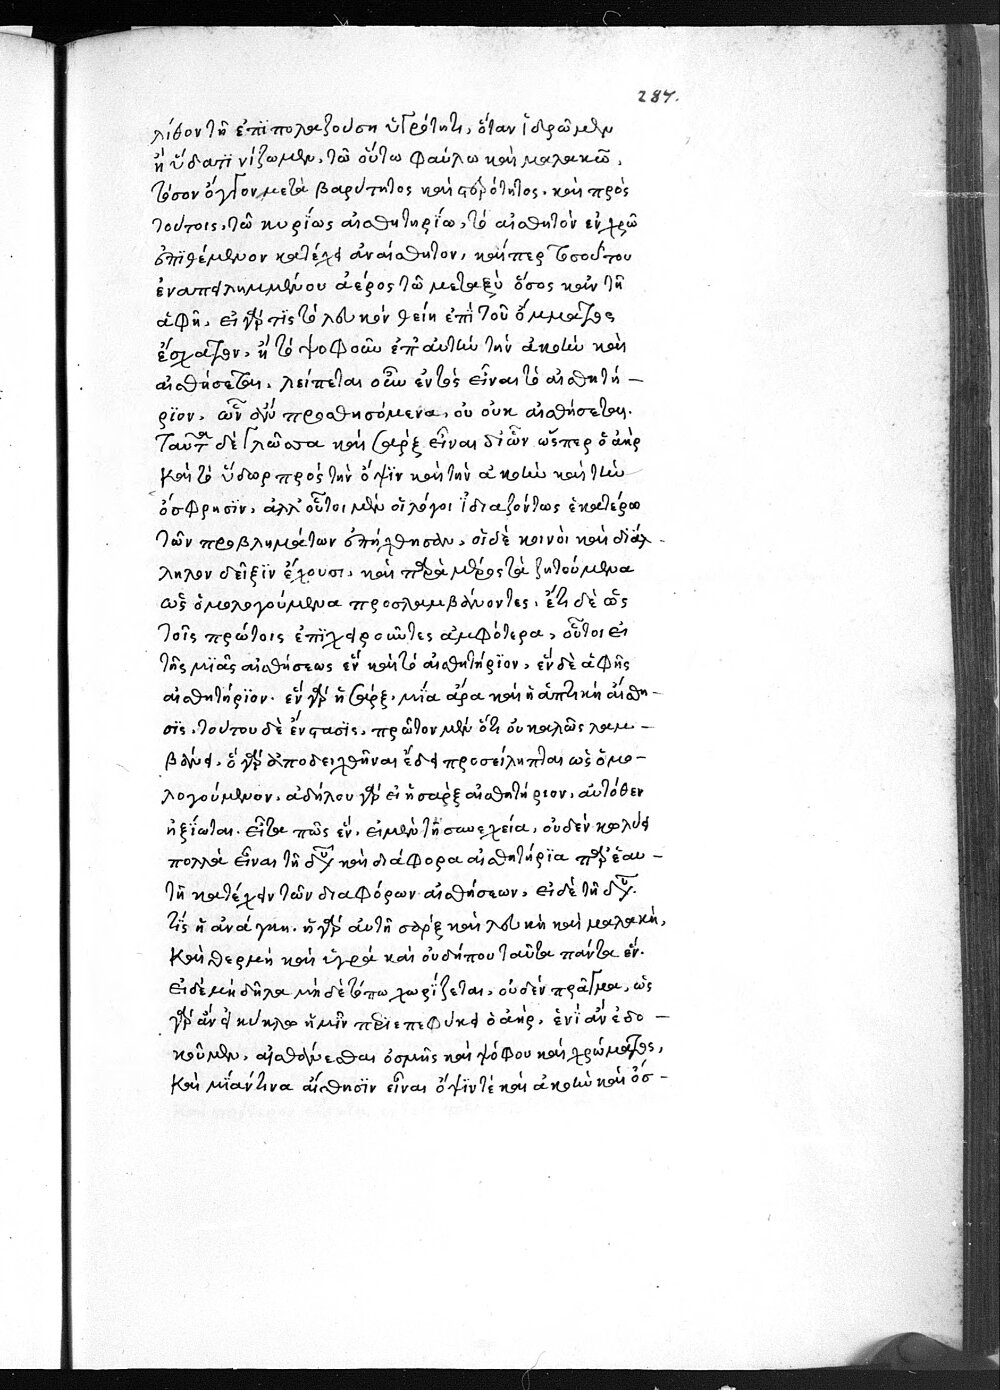 287.
λίβον τῇ ἐπϊπολαζούσῃ ὑγρότητι, ὅταν ἱδρῶμεν
ἢ ὕδατϊ νίζωμεν, τῶ οὕτω φαύλω καὶ μαλακῶ,
τόσον ὄγκον μετὰ βαρύτητος καὶ καὶ πρὸς
τούτοις, τῶ κυρίως αἰσθητηρίω, τὸ αἰσθητὸν ἐν χρῶ
ἐπϊθέμενον κατέχει ἀναίσθητον, καίπερ τοσούτου
ἐναπειλημμένου ἀέρος τῶ μεταξὺ ὅσος κἂν τῇ
ἁφῇ, εἰ γάρ τϊς τὸ λευκὸν θείη ἐπὶ τοῦ ὄμματος
ἐσχάτου, ἢ τὸ ψοφοῦν ἐπ' αὐτὴν τὴν ἀκοὴν καὶ
αἰσθήσεται, λείπεται οὖν ἐντὸς εἶναι τὸ αἰσθητή-
ρϊον, ὧν ἂν προσθησόμενα, οὐ οὐκ αἰσθήσεται.
Ταῦτα δὲ γλῶσσα καὶ σὰρξ εἶναι δι' ὧν ὥσπερ ὁ ἀὴρ
καὶ τὸ ὕδωρ πρὸς τὴν ὄψϊν καὶ τὴν ἀκοὴν καὶ τὴν
ὄσφρησϊν, ἀλλ' οὗτοι μὲν οἱ λόγοι ἰδιαζόντως ἑκατέρω
τῶν προβλημάτων ἐπήχθησαν, οἱ δὲ κοινοὶ καὶ δϊάλ-
ληλον δεῖξϊν ἔχουσι, καὶ παρὰ μέρος τὰ ζητούμενα
ὡς ὁμολογούμενα προσλαμβάνοντες, ἔτι δὲ ὡς
τοῖς πρώτοις ἐπϊχειροῦντες ἀμφότερα, οὗτοι εἰ
τῆς μϊᾶς αἰσθήσεως ἓν καὶ τὸ αἰσθητήρϊον, ἓν δὲ ἁφῆς
αἰσθητήρϊον. ἓν γὰρ ἡ σὰρξ, μία ἄρα καὶ ἡ ἁπτικὴ αἴσθη-
σϊς, τούτου δὲ ἔνστασϊς, πρῶτον μὲν ὅτι οὐ καλῶς λαμ-
βάνει, ὃ γὰρ ἀποδειχθῆναι ἔδει προσείληπται ὡς ὁμο-
λογούμενον, ἀδήλου γὰρ εἰ ἡ σὰρξ αἰσθητήριον, αὐτόθεν
ἠξίωται. εἶτα πῶς ἕν, εἰ μὲν τῇ συνεχεία, οὐδὲν κωλύει
πολλὰ εἶναι τῇ καὶ διάφορα αἰσθητήρϊα παρ' ἑαυ-
τῇ κατέχειν τῶν διαφόρων αἰσθήσεων, εἰ δὲ τῇ
τϊς ἡ ἀνάγκη. ἡ γὰρ αὐτὴ σὰρξ καὶ λευκὴ καὶ μαλακὴ,
καὶ θερμὴ καὶ ὑγρὰ καὶ οὐδήπου ταῦτα πάντα ἕν.
εἰ δὲ μὴ δῆλα μηδὲ τόπω χωρίζεται, οὐδὲν πρᾶγμα, ὡς
γὰρ ἂν εἰ κύκλω ἡμῖν περιεπεφύκει ὁ ἀὴρ, ἑνϊ ἂν ἐδο-
κοῦμεν, αἰσθάνεσθαι ὀσμῆς καὶ ψόφου καὶ χρώματος,
καὶ μίαν τινα αἴσθησϊν εἶναι ὄψϊν τὲ καὶ ἀκοὴν καὶ ὄσ-